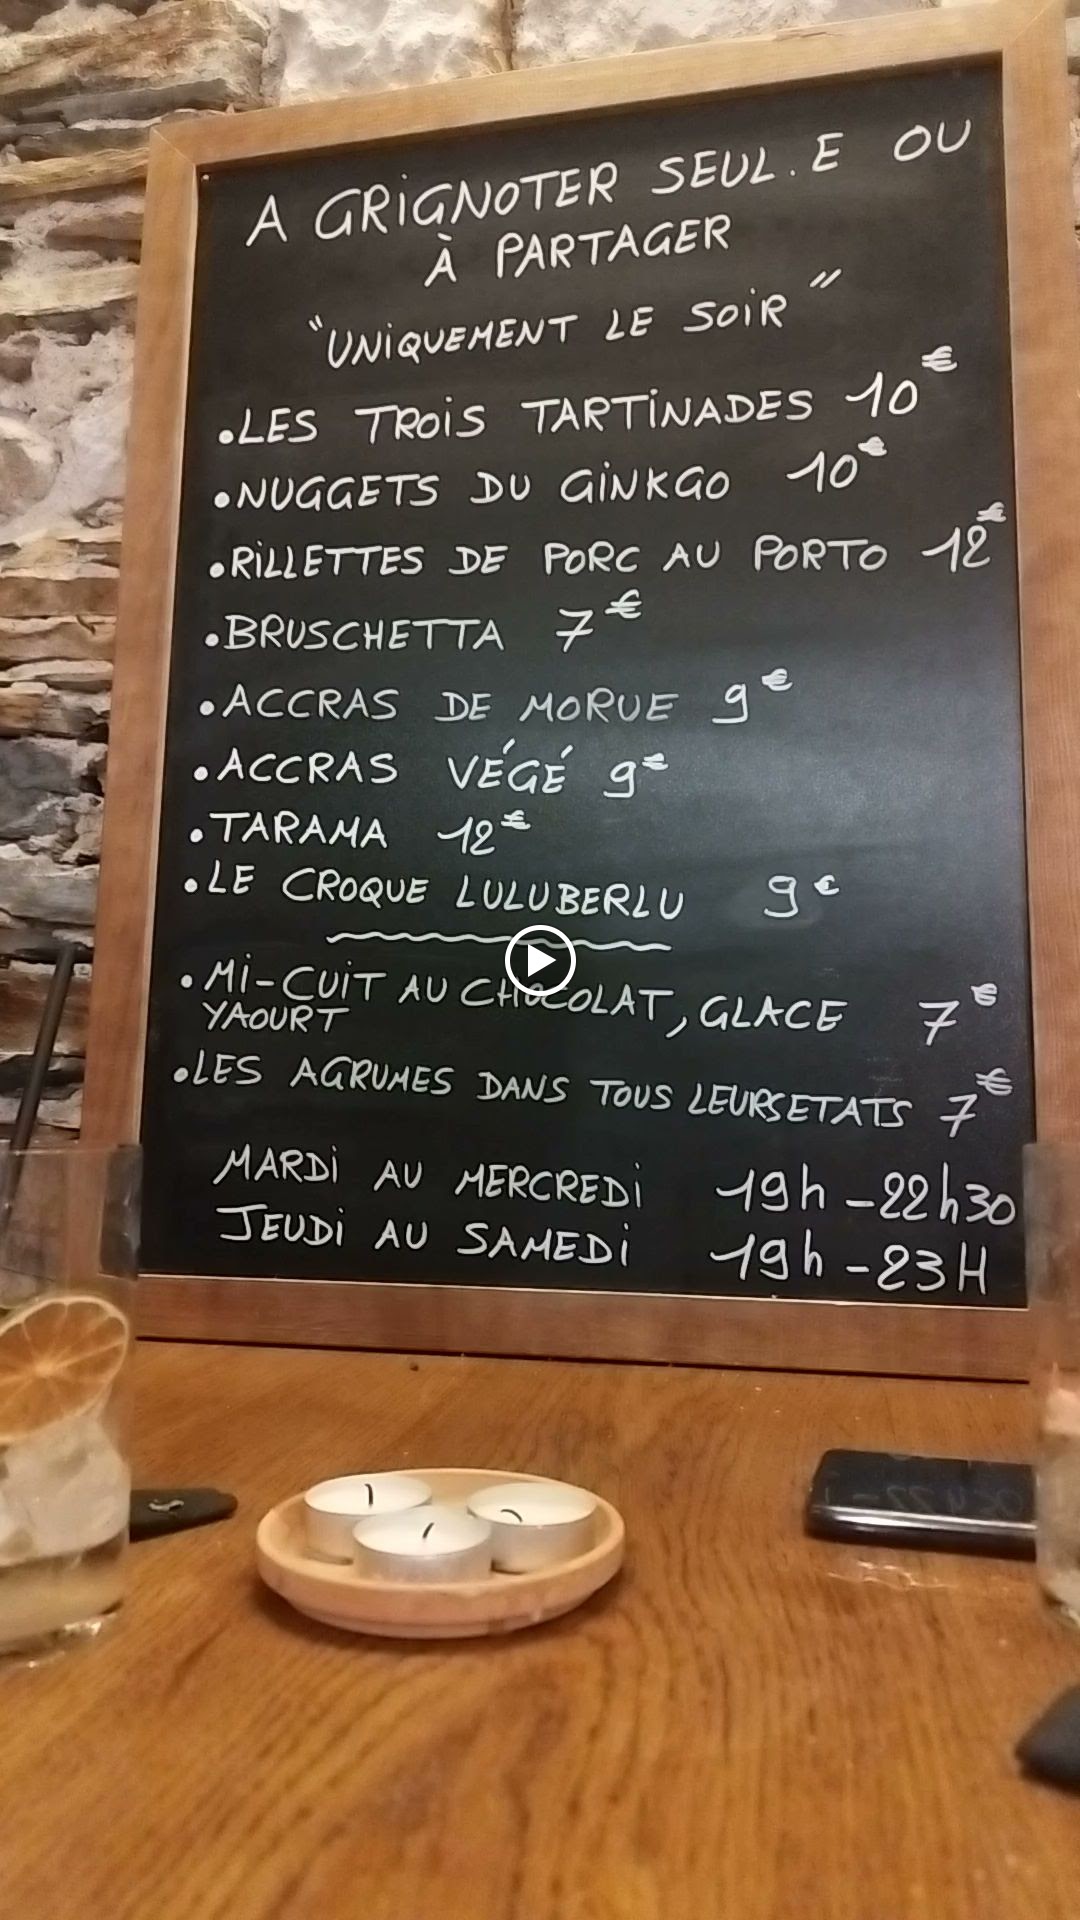 A GRIGNOTER SEUL.E OU
À PARTAGER
"UNIQUEMENT LE SOIR"
•LES TROIS TARTINADES 10€
•NUGGETS DU GINKGO 10€
•RILLETTES DE PORC AU PORTO 12€
•BRUSCHETTA 7€
•ACCRAS DE MORUE 9€
•ACCRAS VÉGÉ 9€
•TARAMA 12€
•LE CROQUE LULUBERLU 9€
•MI-CUIT AU CHOCOLAT, GLACE 7€
YAOURT
•LES AGRUMES DANS TOUS LEURSETATS 7€
MARDI AU MERCREDI 19h-22h30
JEUDI AU SAMEDI 19h-23H